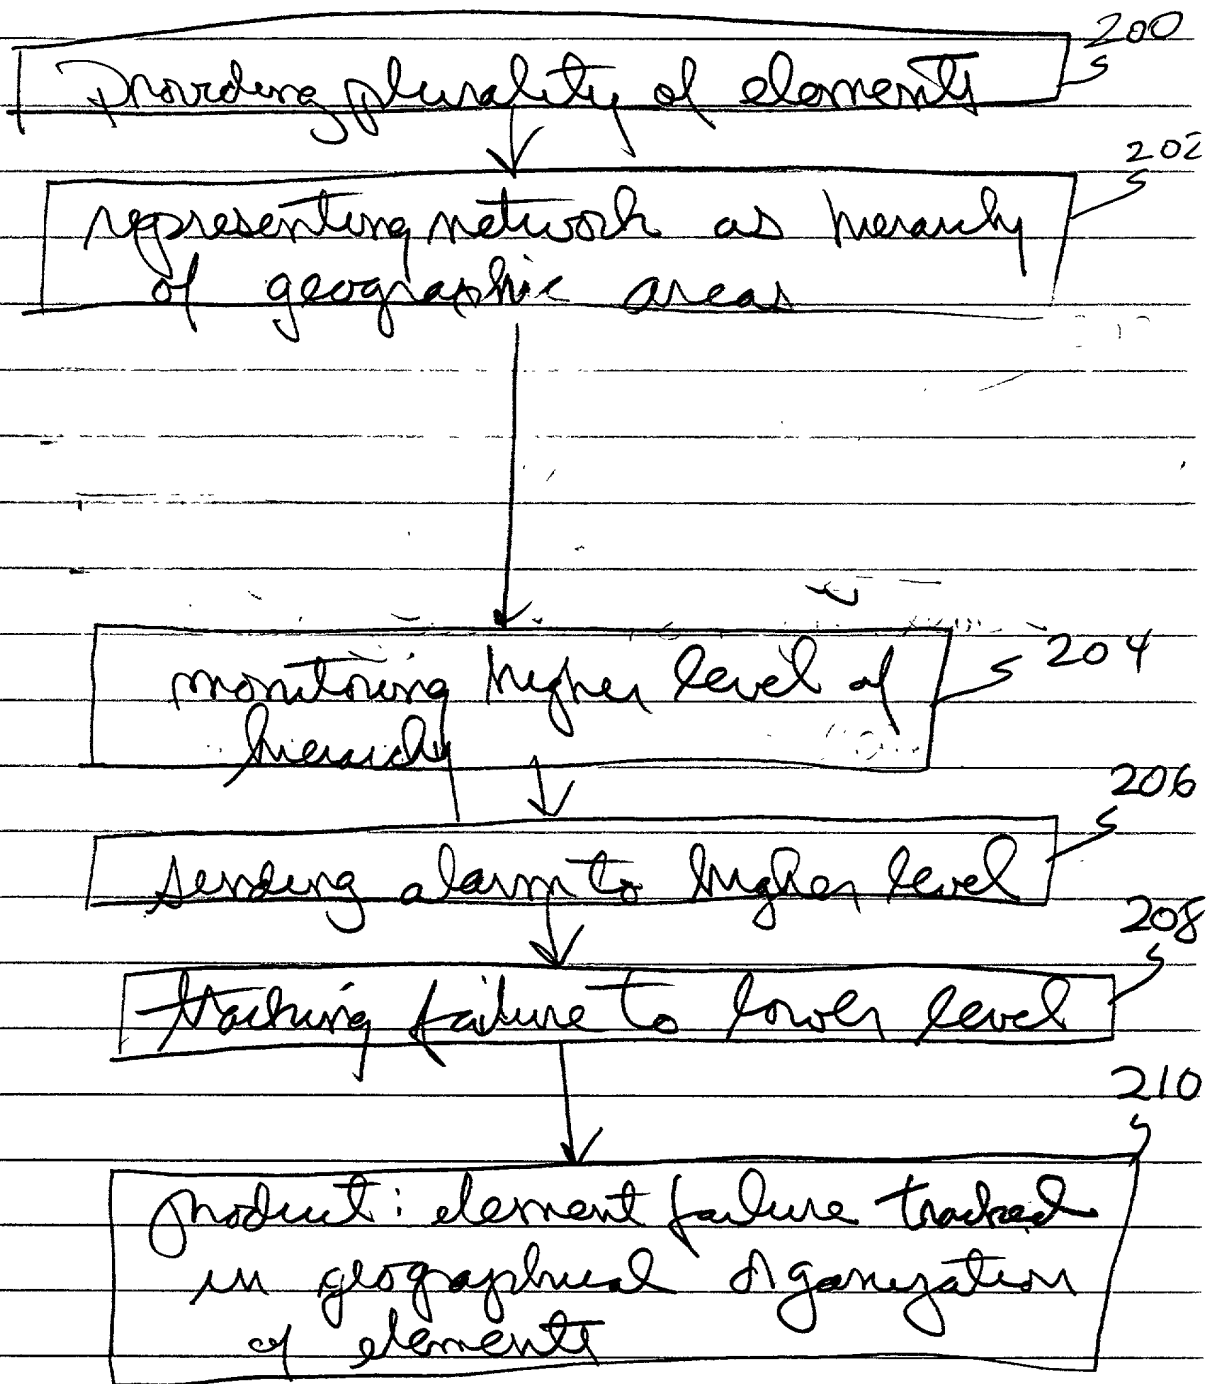 200
providing plurality of elements
202
representing network as hierarchy
of geographic areas
204
monitoring higher level of
hierarchy
206
sending alarm to higher level
208
tracking failure to lower level
210
product: element failure tracked
in geographical organization
of elements